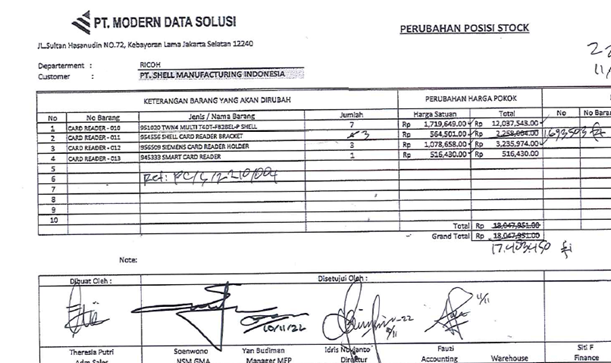 PT. MODERN DATA SOLUSI
PERUBAHAN POSISI STOCK
JL.Sultan Hasanudin NO.72, Kebayoran Lama Jakarta Selatan 12240
Departerment : RICOH
Customer : PT. SHELL MANUFACTURING INDONESIA
KETERANGAN BARANG YANG AKAN DIRUBAH PERUBAHAN HARGA POKOK
No No Barang Jenis / Nama Barang Jumlah Harga Satuan Total No No Baran
1 CARD READER - 010 951020 TWN4 MULTI SHELL 7 Rp 1,719,649.00 Rp 12,037,543.00
2 CARD READER - 011 954556 SHELL CARD READER BRACKET 3 Rp 564,501.00 Rp 2,258,004.00 1.693.503
3 CARD READER - 012 956509 SIEMENS CARD READER HOLDER 3 Rp 1,078,658.00 Rp 3,235,974.00
4 CARD READER - 013 945333 SMART CARD READER 1 Rp 516,430.00 Rp 516,430.00
5
6
7
8
9
10
Total Rp 18,047,951.00
Grand Total Rp 18,047,951.00
17.483.450
Note:
Dibuat Oleh : Disetujui Oleh :
10/11/22
11/11
Theresia Putri Soenwono Yan Budiman Idris Nojianto Fauzi Siti F
Adm Sales NSM GMA Manager MFP Direktur Accounting Warehouse Finance